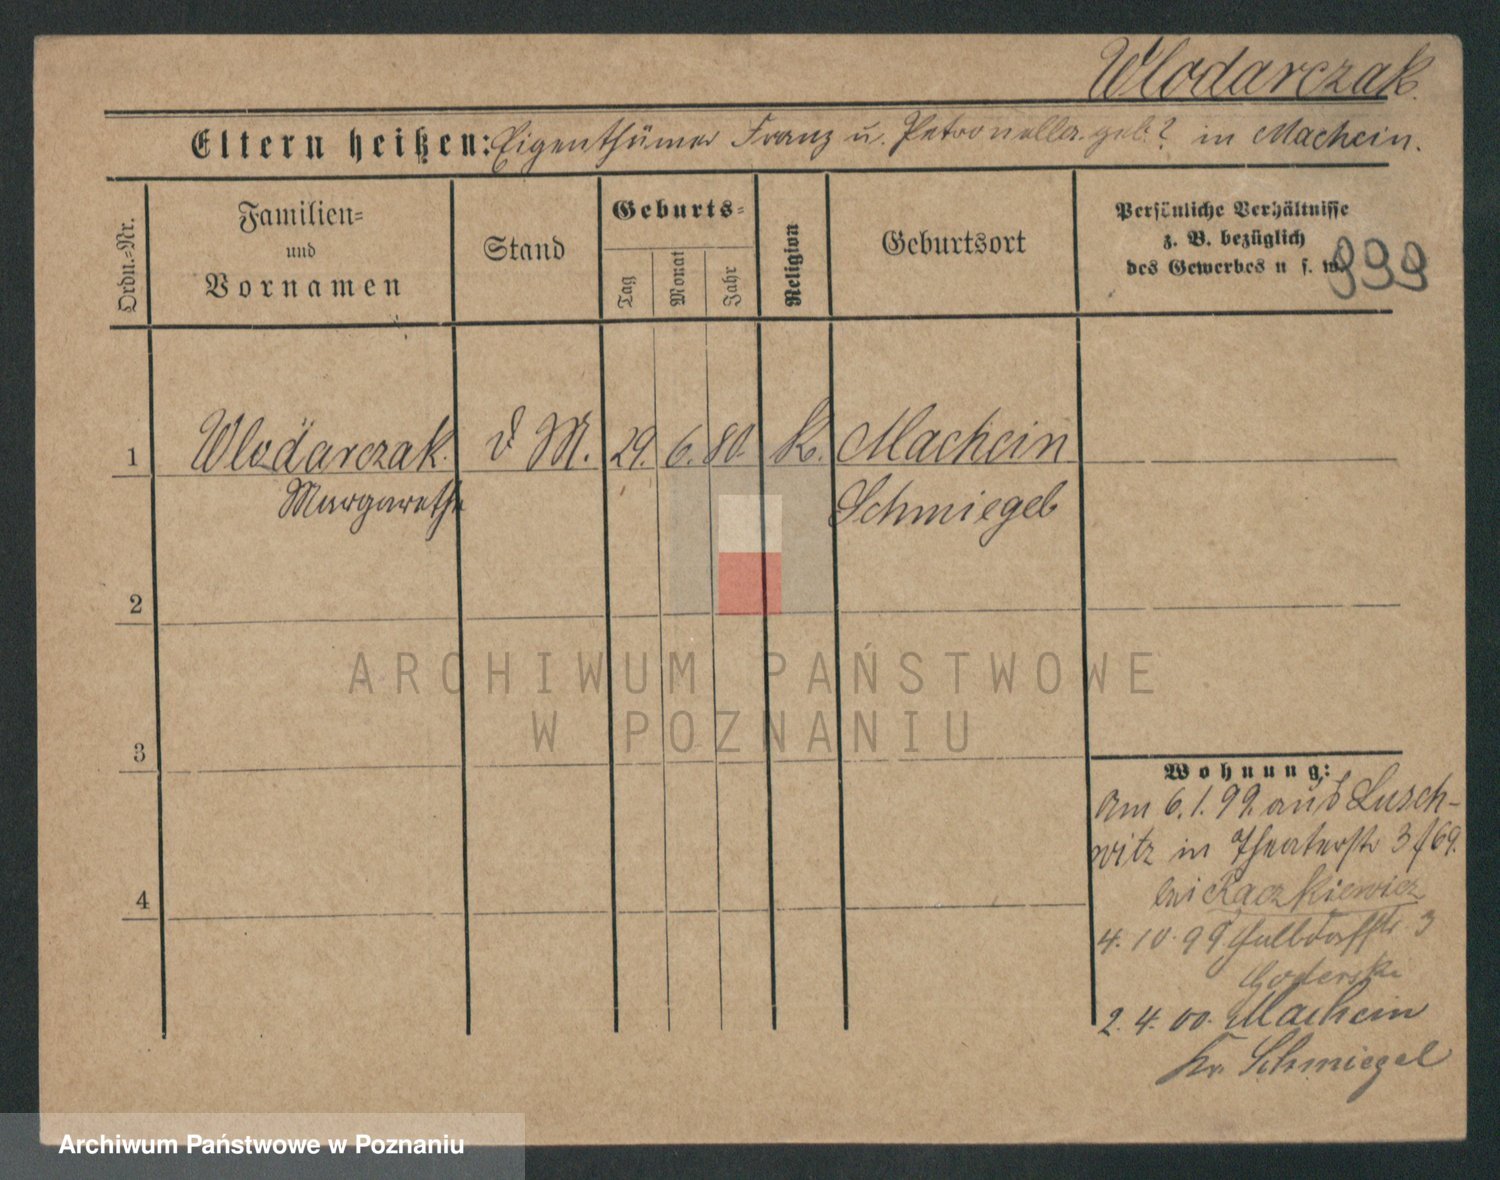 Wlodarczak.
Eltern heißen: Eigenthümer Franz u. Petronella geb. ? in Machcin.
Ordn.-Nr.
Familien-
und
Vornamen
Stand
Geburts-
Tag
Monat
Jahr
Religion
Geburtsort
Persönliche Verhältnisse
z. B. bezüglich
des Gewerbes u s. w.
999
1 Wlodarczak d M. 29. 6. 80. K. Machcin
Margarethe Schmiegel
2
3
4
ARCHIWUM PAŃSTWOWE
W POZNANIU
Wohnung:
Am 6.1.99 aus Lusch-
witz in Theaterstr 3 /69.
bei Raczkiewicz
4. 10. 99 3
2. 4. 00. Machcin
Kr. Schmiegel
Archiwum Państwowe w Poznaniu